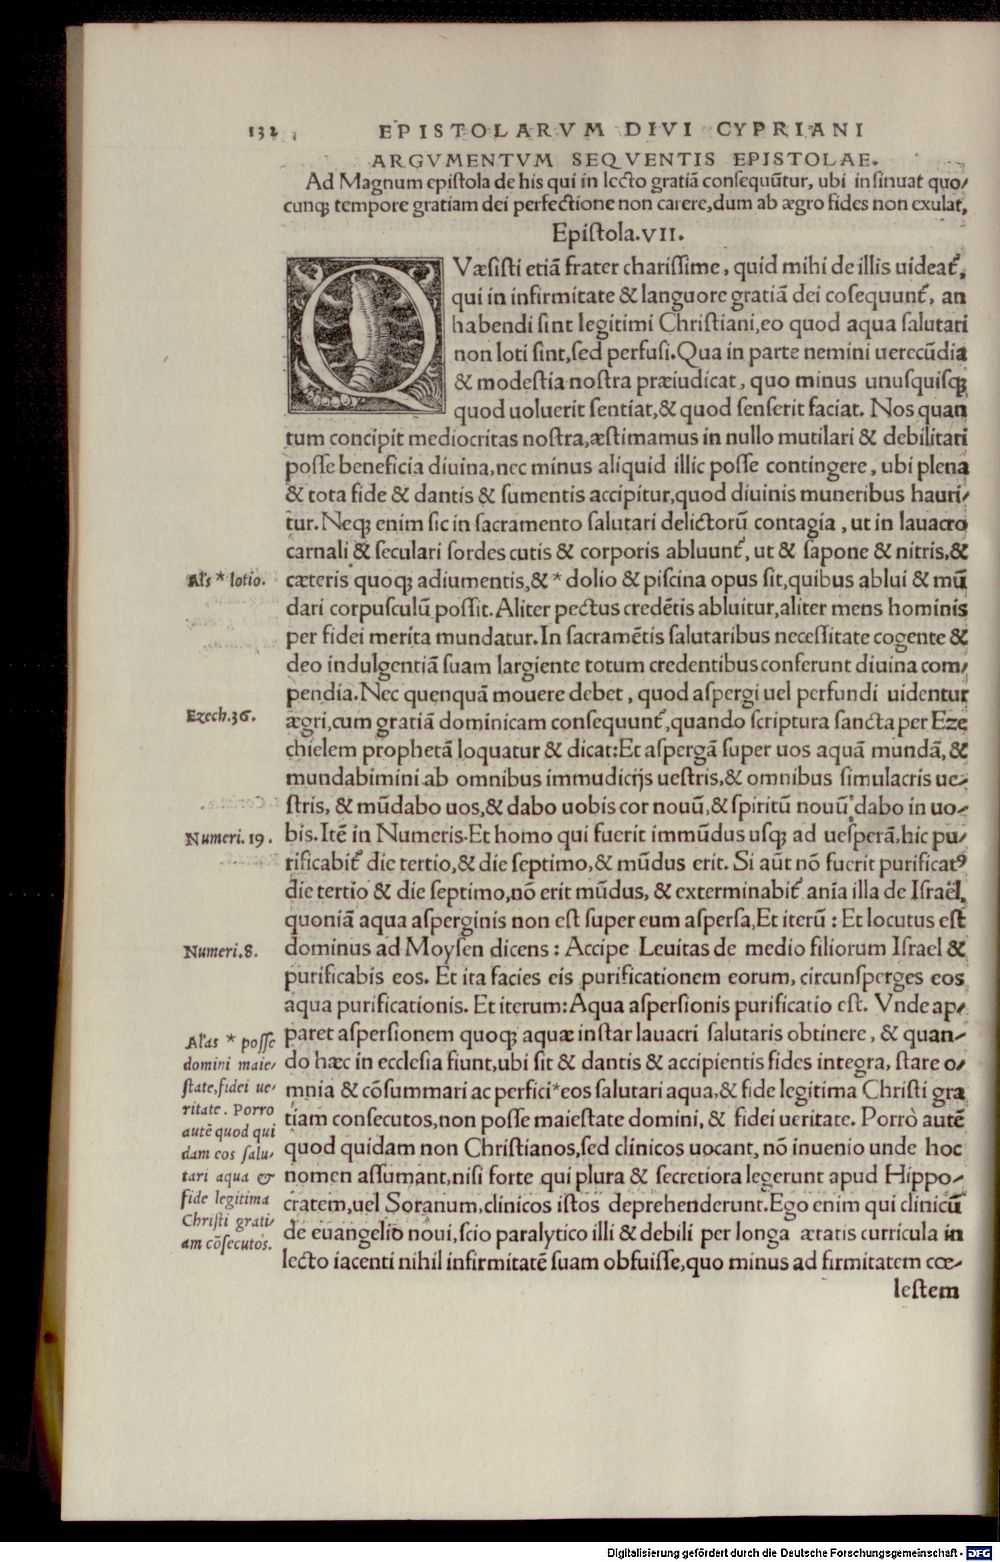 132 EPISTOLARVM DIVI CYPRIANI
ARGVMENTVM SEQVENTIS EPISTOLAE.
Ad Magnum epiſtola de his qui in lecto gratiã conſequũtur, ubi inſinuat quo/
cunqꝫ tempore gratiam dei perfectione non carere,dum ab ægro fides non exulat,
Epiſtola.VII.
QVæſiſti etiã frater chariſſime, quid mihi de illis uideat᷑,
qui in infirmitate & languore gratiã dei coſequunt᷑, an
habendi ſint legitimi Chriſtiani,eo quod aqua ſalutari
non loti ſint,ſed perfuſi.Qua in parte nemini uerecũdia
& modeſtia noſtra præiudicat, quo minus unuſquiſqꝫ
quod uoluerit ſentiat,& quod ſenſerit faciat. Nos quan
tum concipit mediocritas noſtra,æſtimamus in nullo mutilari & debilitari
poſſe beneficia diuina,nec minus aliquid illic poſſe contingere, ubi plena
& tota fide & dantis & ſumentis accipitur,quod diuinis muneribus hauri/
tur.Neqꝫ enim ſic in ſacramento ſalutari delictorũ contagia, ut in lauacro
carnali & ſeculari ſordes cutis & corporis abluunt᷑, ut & ſapone & nitris,&
Al's * lotio.
cæteris quoqꝫ adiumentis,& * dolio & piſcina opus ſit,quibus ablui & mũ
dari corpuſculũ poſſit.Aliter pectus credẽtis abluitur,aliter mens hominis
per fidei merita mundatur.In ſacramẽtis ſalutaribus neceſſitate cogente &
deo indulgentiã ſuam largiente totum credentibus conferunt diuina com/
pendia.Nec quenquã mouere debet, quod aſpergi uel perfundi uidentur
Ezech.36.
ægri,cum gratiã dominicam conſequunt᷑,quando ſcriptura ſancta per Eze
chielem prophetã loquatur & dicat:Et aſpergã ſuper uos aquã mundã,&
mundabimini ab omnibus immudicijs ueſtris,& omnibus ſimulacris ue/
ſtris, & mũdabo uos,& dabo uobis cor nouũ,& ſpiritũ nouũ dabo in uo/
Numeri.19.
bis.Itẽ in Numeris.Et homo qui fuerit immũdus uſqꝫ ad ueſperã,hic pu/
rificabit᷑ die tertio,& die ſeptimo,& mũdus erit. Si aũt nõ fuerit purificatꝰ
die tertio & die ſeptimo,nõ erit mũdus, & exterminabit᷑ aĩa illa de Iſraël,
quoniã aqua aſperginis non eſt ſuper eum aſperſa,Et iterũ : Et locutus eſt
Numeri.8.
dominus ad Moyſen dicens : Accipe Leuitas de medio filiorum Iſrael &
purificabis eos. Et ita facies eis purificationem eorum, circunſperges eos
aqua purificationis. Et iterum:Aqua aſperſionis purificatio eſt. Vnde ap/
paret aſperſionem quoqꝫ aquæ inſtar lauacri ſalutaris obtinere, & quan/
do hæc in eccleſia fiunt,ubi ſit & dantis & accipientis fides integra, ſtare o/
mnia & cõſummari ac perfici*eos ſalutari aqua,& fide legitima Chriſti gra
tiam conſecutos,non poſſe maieſtate domini, & fidei ueritate. Porrò autẽ
quod quidam non Chriſtianos,ſed clinicos uocant, nõ inuenio unde hoc
nomen aſſumant,niſi forte qui plura & ſecretiora legerunt apud Hippo/
cratem,uel Soranum,clinicos iſtos deprehenderunt.Ego enim qui clinicũ
de euangelio noui,ſcio paralytico illi & debili per longa ætatis curricula in
lecto iacenti nihil infirmitatẽ ſuam obfuiſſe,quo minus ad firmitatem cœ/
leſtem
Al'as * poſſe
domini maie/
ſtate,fidei ue/
ritate. Porro
autẽ quod qui
dam eos ſalu/
tari aqua &
fide legitima
Chriſti grati/
am cõſecutos.
Digitalisierung gefördert durch die Deutsche Forschungsgemeinschaft - DFG